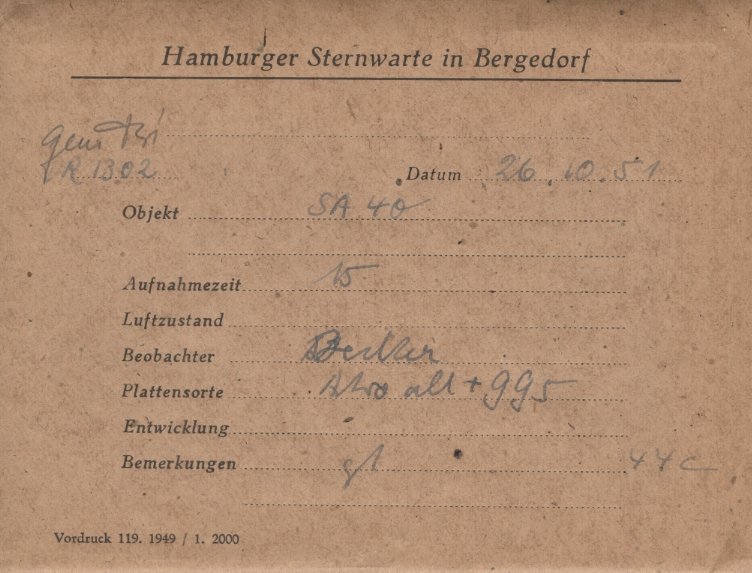 Hamburger Sternwarte in Bergedorf
R 1302
Datum 26.10.51
Objekt SA 40
Aufnahmezeit 15
Luftzustand
Beobachter Becker
Plattensorte alt + 995
Entwicklung
Bemerkungen gt 44c
Vordruck 119. 1949 / 1. 2000